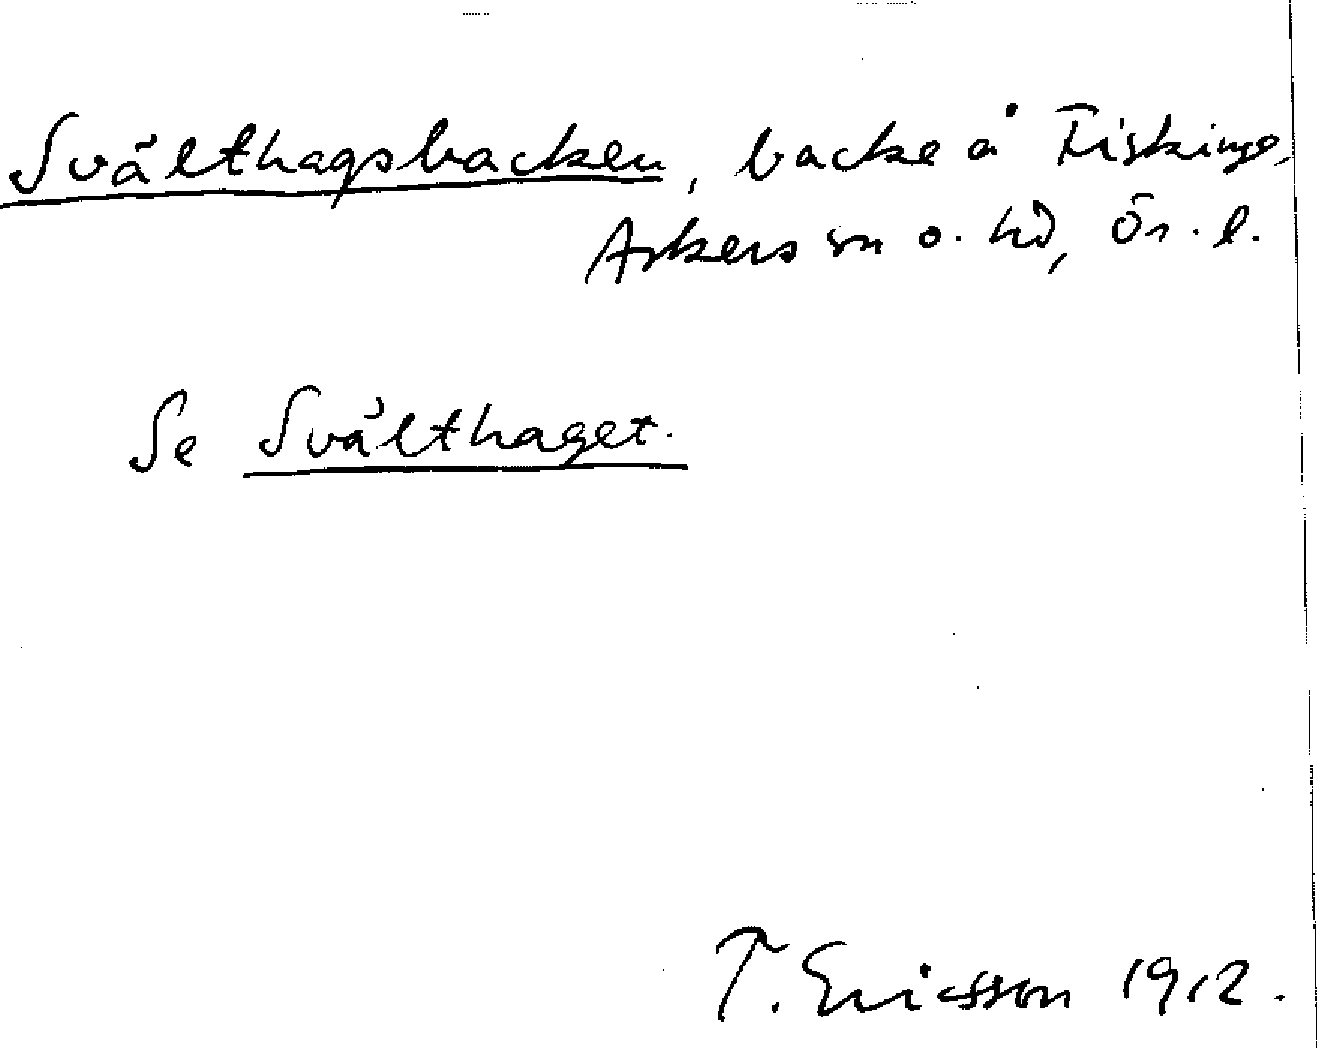 Svälthagsbacken, backe å Fiskinge,
Askers sn o. hd, Ör. l.
Se Svälthaget.
T. Ericsson 1912.